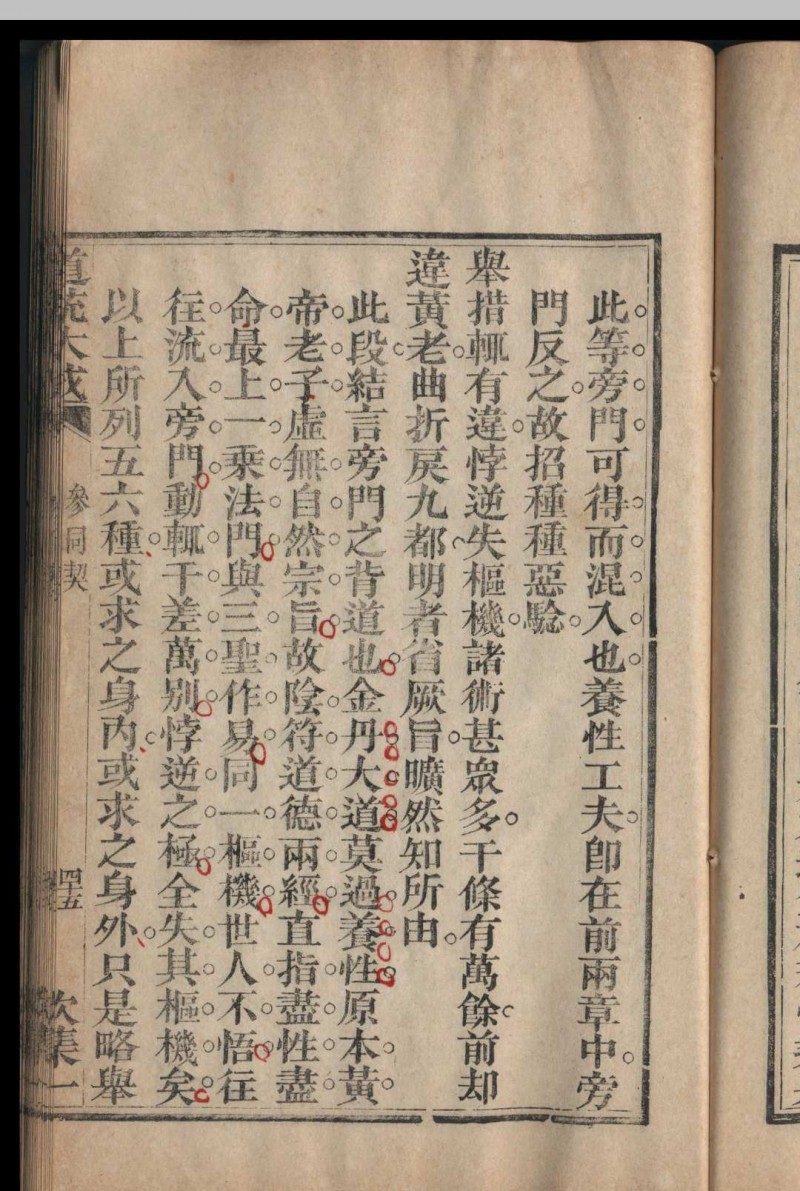 此等旁門可得而混入也養性工夫卽在前兩章中旁
門反之故招種種惡驗
舉措輒有違悖逆失樞機諸術甚眾多千條有萬餘前却
違黃老曲折戾九都明者省厥旨曠然知所由
此段結言旁門之背道也金丹大道莫過養性原本黃
帝老子虛無自然宗旨故陰符道德兩經直指盡性盡
命最上一乘法門與三聖作易同一樞機世人不悟往
往流入旁門動輒千差萬別悖逆之極全失其樞機矣
以上所列五六種或求之身內或求之身外只是略舉
道統大成 參同契 四十五 欠集一